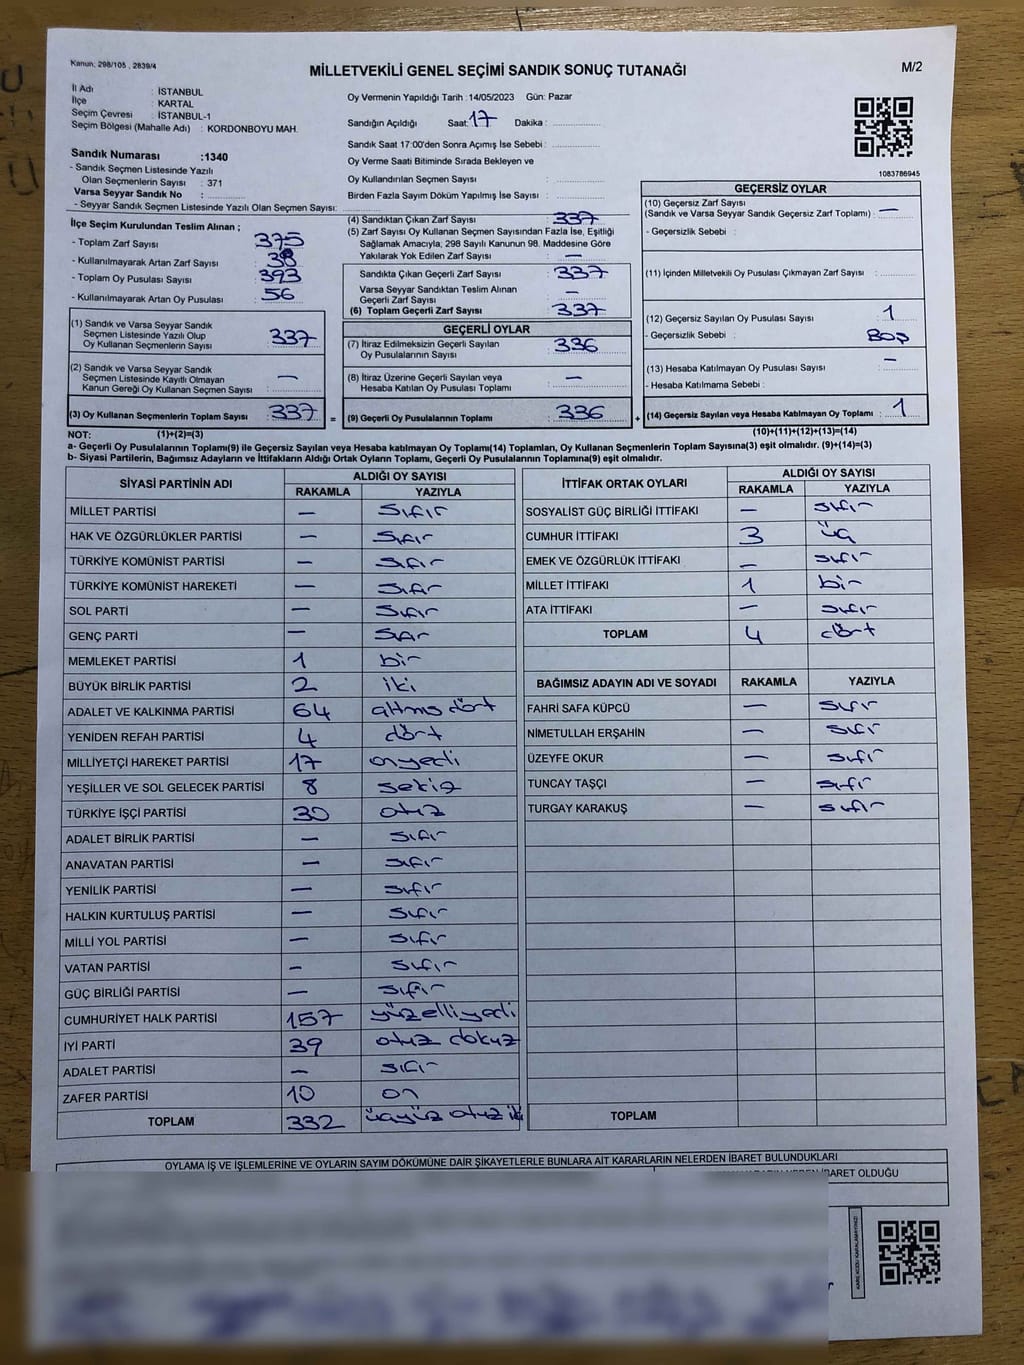 Kanun: 298/105 , 2839/4
MİLLETVEKİLİ GENEL SEÇİMİ SANDIK SONUÇ TUTANAĞI
M/2
İl Adı : İSTANBUL
İlçe : KARTAL
Seçim Çevresi : İSTANBUL-1
Seçim Bölgesi (Mahalle Adı) : KORDONBOYU MAH.
Oy Vermenin Yapıldığı Tarih : 14/05/2023 Gün: Pazar
Sandığın Açıldığı Saat: 17 Dakika :
Sandık Saat 17:00'den Sonra Açımış İse Sebebi :
Oy Verme Saati Bitiminde Sırada Bekleyen ve
Oy Kullandırılan Seçmen Sayısı :
Birden Fazla Sayım Döküm Yapılmış İse Sayısı :
1083786945
Sandık Numarası :1340
- Sandık Seçmen Listesinde Yazılı
Olan Seçmenlerin Sayısı : 371
Varsa Seyyar Sandık No :
- Seyyar Sandık Seçmen Listesinde Yazılı Olan Seçmen Sayısı:
İlçe Seçim Kurulundan Teslim Alınan ;
- Toplam Zarf Sayısı : 375
- Kullanılmayarak Artan Zarf Sayısı : 38
- Toplam Oy Pusulası Sayısı : 393
- Kullanılmayarak Artan Oy Pusulası : 56
(1) Sandık ve Varsa Seyyar Sandık
Seçmen Listesinde Yazılı Olup
Oy Kullanan Seçmenlerin Sayısı : 337
(2) Sandık ve Varsa Seyyar Sandık
Seçmen Listesinde Kayıtlı Olmayan
Kanun Gereği Oy Kullanan Seçmen Sayısı : —
(3) Oy Kullanan Seçmenlerin Toplam Sayısı : 337
(4) Sandıktan Çıkan Zarf Sayısı : 337
(5) Zarf Sayısı Oy Kullanan Seçmen Sayısından Fazla İse, Eşitliği
Sağlamak Amacıyla, 298 Sayılı Kanunun 98. Maddesine Göre
Yakılarak Yok Edilen Zarf Sayısı : —
Sandıkta Çıkan Geçerli Zarf Sayısı : 337
Varsa Seyyar Sandıktan Teslim Alınan
Geçerli Zarf Sayısı : —
(6) Toplam Geçerli Zarf Sayısı : 337
GEÇERLİ OYLAR
(7) İtiraz Edilmeksizin Geçerli Sayılan
Oy Pusulalarının Sayısı : 336
(8) İtiraz Üzerine Geçerli Sayılan veya
Hesaba Katılan Oy Pusulası Toplamı : —
= (9) Geçerli Oy Pusulalarının Toplamı : 336 +
GEÇERSİZ OYLAR
(10) Geçersiz Zarf Sayısı
(Sandık ve Varsa Seyyar Sandık Geçersiz Zarf Toplamı) : —
- Geçersizlik Sebebi :
(11) İçinden Milletvekili Oy Pusulası Çıkmayan Zarf Sayısı :
(12) Geçersiz Sayılan Oy Pusulası Sayısı : 1
- Geçersizlik Sebebi : BOŞ
(13) Hesaba Katılmayan Oy Pusulası Sayısı : —
- Hesaba Katılmama Sebebi :
(14) Geçersiz Sayılan veya Hesaba Katılmayan Oy Toplamı : 1
NOT: (1)+(2)=(3)
(10)+(11)+(12)+(13)=(14)
a- Geçerli Oy Pusulalarının Toplamı(9) ile Geçersiz Sayılan veya Hesaba katılmayan Oy Toplamı(14) Toplamları, Oy Kullanan Seçmenlerin Toplam Sayısına(3) eşit olmalıdır. (9)+(14)=(3)
b- Siyasi Partilerin, Bağımsız Adayların ve İttifakların Aldığı Ortak Oyların Toplamı, Geçerli Oy Pusulalarının Toplamına(9) eşit olmalıdır.
SİYASİ PARTİNİN ADI ALDIĞI OY SAYISI
RAKAMLA YAZIYLA
MİLLET PARTİSİ — sıfır
HAK VE ÖZGÜRLÜKLER PARTİSİ — sıfır
TÜRKİYE KOMÜNİST PARTİSİ — sıfır
TÜRKİYE KOMÜNİST HAREKETİ — sıfır
SOL PARTİ — sıfır
GENÇ PARTİ — sıfır
MEMLEKET PARTİSİ 1 bir
BÜYÜK BİRLİK PARTİSİ 2 iki
ADALET VE KALKINMA PARTİSİ 64 altmış dört
YENİDEN REFAH PARTİSİ 4 dört
MİLLİYETÇİ HAREKET PARTİSİ 17 onyedi
YEŞİLLER VE SOL GELECEK PARTİSİ 8 sekiz
TÜRKİYE İŞÇİ PARTİSİ 30 otuz
ADALET BİRLİK PARTİSİ — sıfır
ANAVATAN PARTİSİ — sıfır
YENİLİK PARTİSİ — sıfır
HALKIN KURTULUŞ PARTİSİ — sıfır
MİLLİ YOL PARTİSİ — sıfır
VATAN PARTİSİ — sıfır
GÜÇ BİRLİĞİ PARTİSİ — sıfır
CUMHURİYET HALK PARTİSİ 157 yüzelliyedi
İYİ PARTİ 39 otuz dokuz
ADALET PARTİSİ — sıfır
ZAFER PARTİSİ 10 on
TOPLAM 332 üçyüz otuz iki
İTTİFAK ORTAK OYLARI ALDIĞI OY SAYISI
RAKAMLA YAZIYLA
SOSYALİST GÜÇ BİRLİĞİ İTTİFAKI — sıfır
CUMHUR İTTİFAKI 3 üç
EMEK VE ÖZGÜRLÜK İTTİFAKI — sıfır
MİLLET İTTİFAKI 1 bir
ATA İTTİFAKI — sıfır
TOPLAM 4 dört
BAĞIMSIZ ADAYIN ADI VE SOYADI RAKAMLA YAZIYLA
FAHRİ SAFA KÜPCÜ — sıfır
NİMETULLAH ERŞAHİN — sıfır
ÜZEYFE OKUR — sıfır
TUNCAY TAŞÇI — sıfır
TURGAY KARAKUŞ — sıfır
TOPLAM
OYLAMA İŞ VE İŞLEMLERİNE VE OYLARIN SAYIM DÖKÜMÜNE DAİR ŞİKAYETLERLE BUNLARA AİT KARARLARIN NELERDEN İBARET BULUNDUKLARI
İBARET OLDUĞU